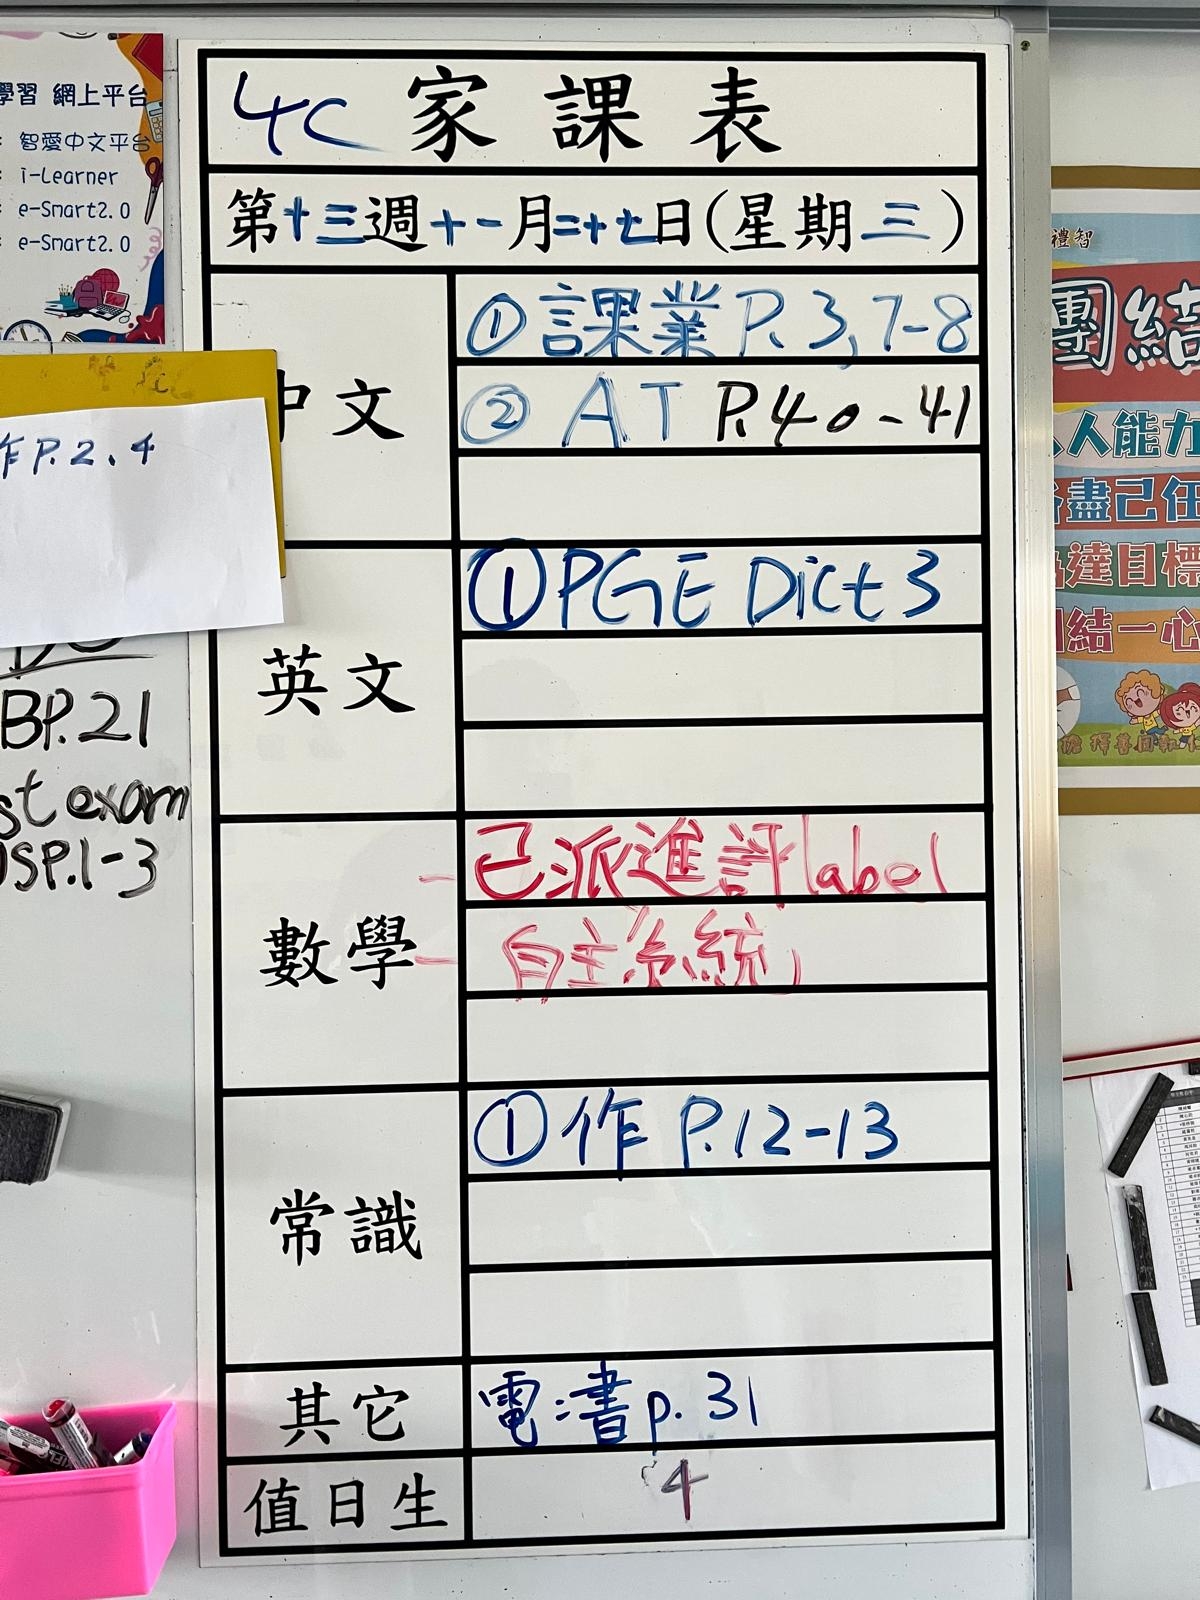 4C 家課表
第十三週十一月二十七日(星期三)
中文
① 課業 P.3, 7-8
② AT P.40-41
英文
① PGE Dict 3
數學
- 已派進評label
- 自主系統
常識
① 作 P.12-13
其它
電:書 p.31
值日生
4
學習 網上平台
: 智愛中文平台
: i-Learner
: e-Smart2.0
: e-Smart2.0
作P.2.4
BP.21
st exam
SP.1-3
禮智
團結
人人能力
盡己任
達目標
團結一心
擇善固執